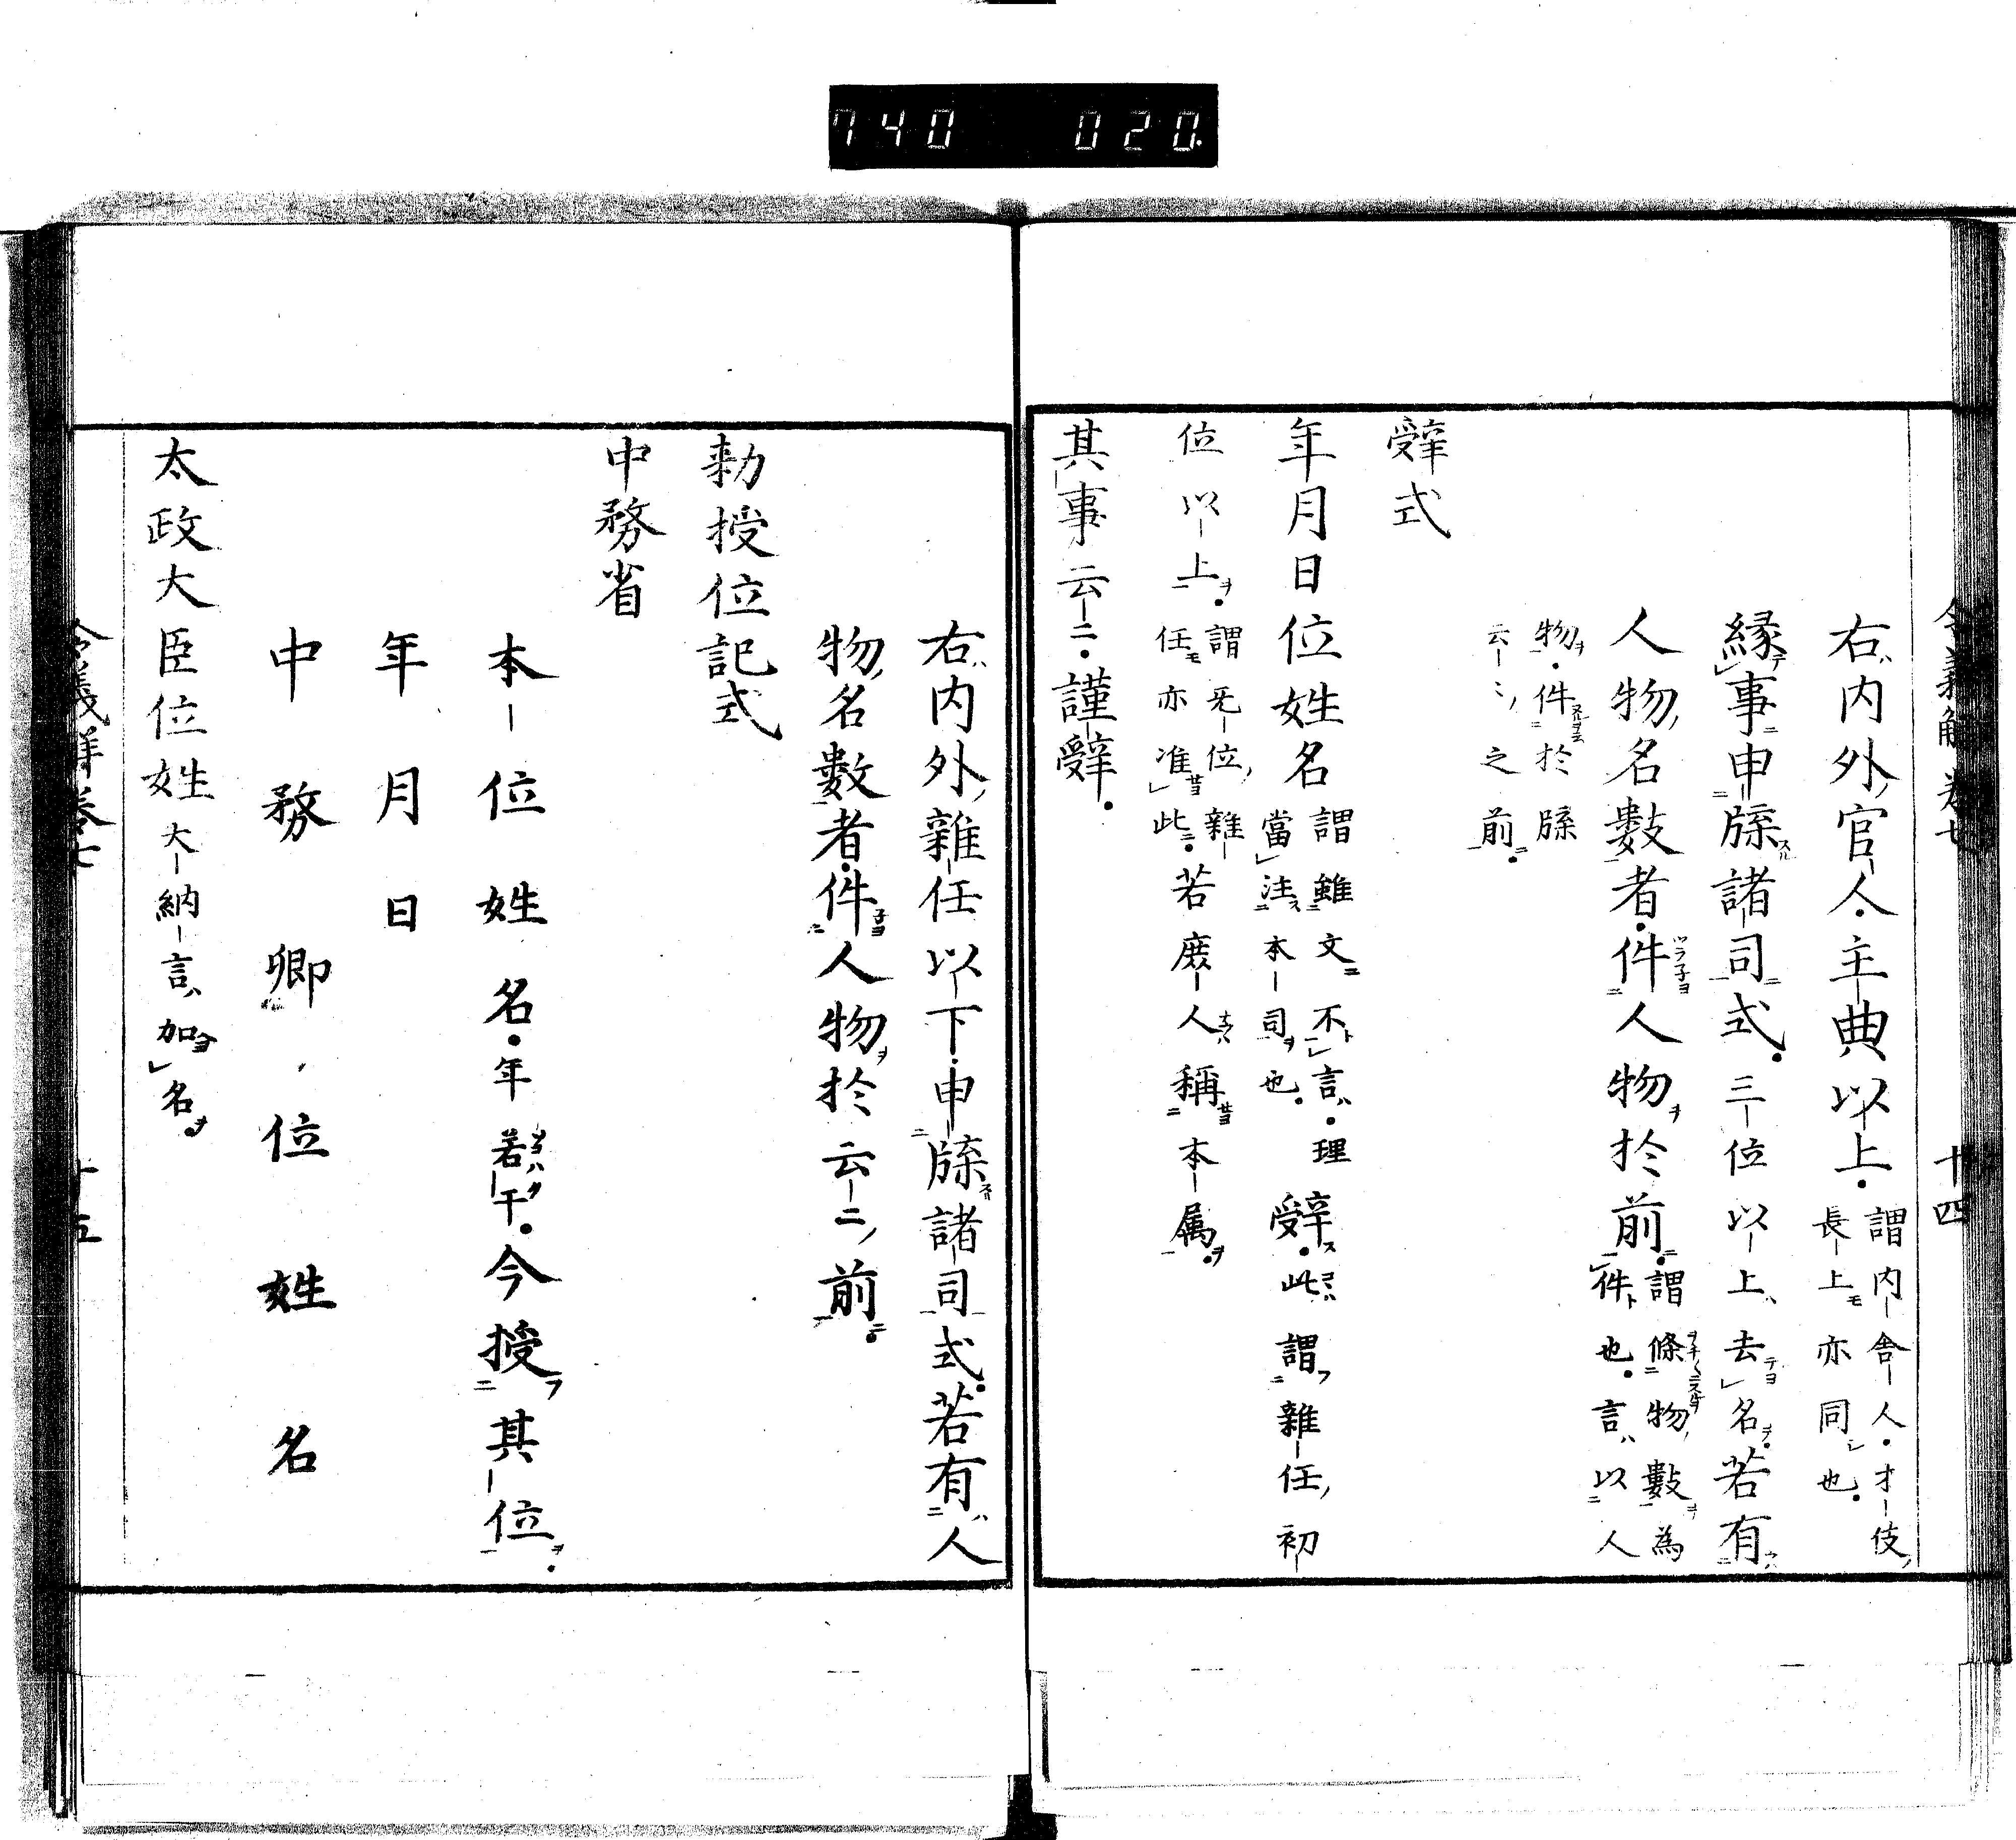 740 020
令義解卷七 十四
右内外官人主典以上謂内舎人才伎
長上亦同也
縁事申牒諸司式三位以上去名若有
人物名數者件人物於前謂條物數為
件也言以人
物件於牒
云〻之前
辤式
年月日位姓名謂雖文不言理
當注本司也辤此謂雜任初
位以上謂无位雜
任亦准此若庶人稱本属
其事云二謹辤
右内外雜任以下申牒諸司式若有人
物名數者件人物於云二前
勅授位記式
中務省
本位姓名年若干今授其位
年月日
中務卿位姓名
太政大臣位姓大納言加名
令義解卷七 十五